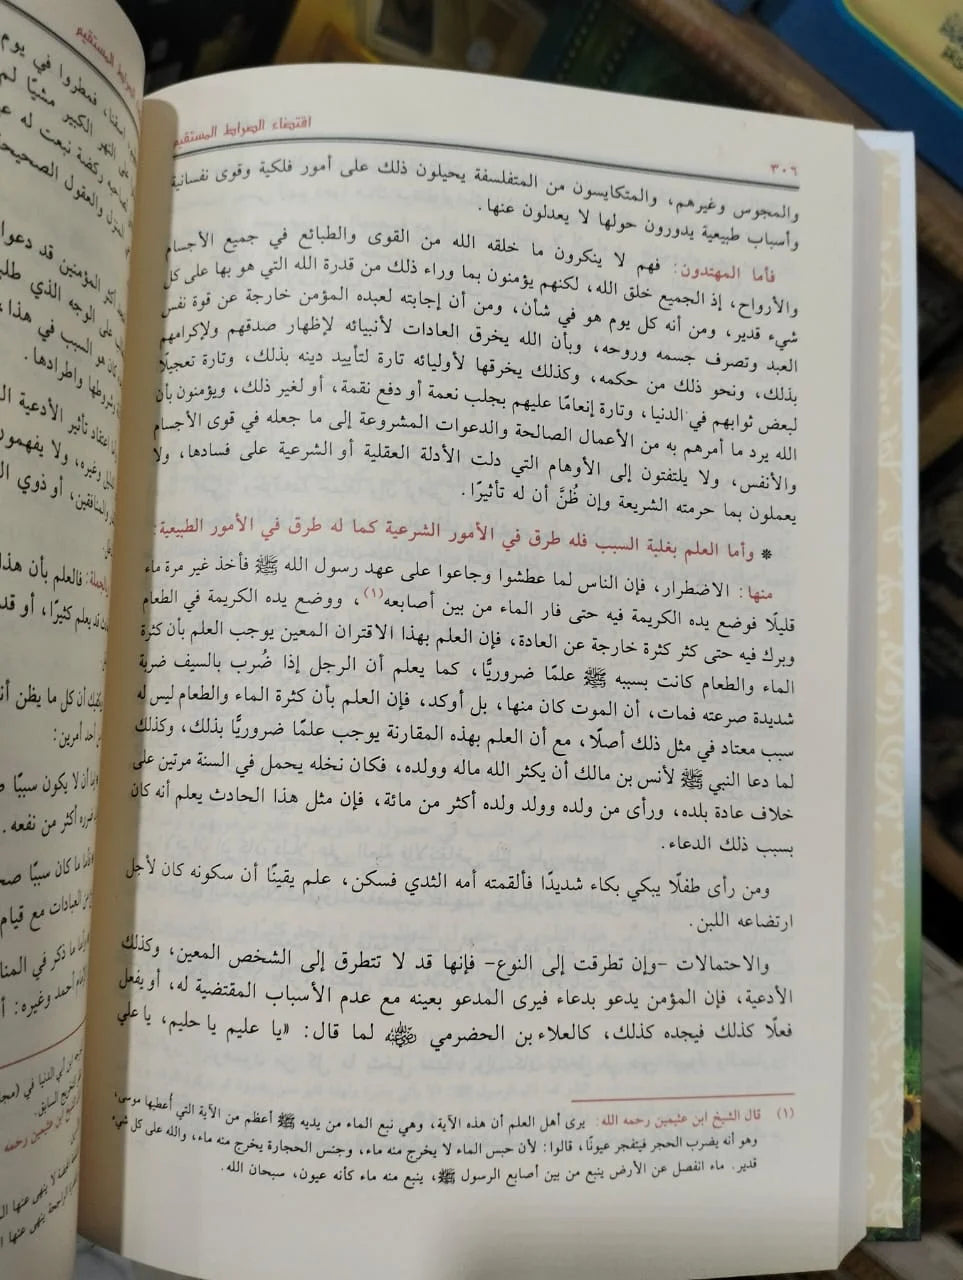 اقتضاء الصراط المستقيم
٣٠٦
والمجوس وغيرهم، والمتكايسون من المتفلسفة يحيلون ذلك على أمور فلكية وقوى نفسانية
وأسباب طبيعية يدورون حولها لا يعدلون عنها.
فأما المهتدون: فهم لا ينكرون ما خلقه الله من القوى والطبائع في جميع الأجسام
والأرواح، إذ الجميع خلق الله، لكنهم يؤمنون بما وراء ذلك من قدرة الله التي هو بها على كل
شيء قدير، ومن أنه كل يوم هو في شأن، ومن أن إجابته لعبده المؤمن خارجة عن قوة نفس
العبد وتصرف جسمه وروحه، وبأن الله يخرق العادات لأنبيائه لإظهار صدقهم ولإكرامهم
بذلك، ونحو ذلك من حكمه، وكذلك يخرقها لأوليائه تارة لتأييد دينه بذلك، وتارة تعجيلًا
لبعض ثوابهم في الدنيا، وتارة إنعامًا عليهم بجلب نعمة أو دفع نقمة، أو لغير ذلك، ويؤمنون بأن
الله يرد ما أمرهم به من الأعمال الصالحة والدعوات المشروعة إلى ما جعله في قوى الأجسام
والأنفس، ولا يلتفتون إلى الأوهام التي دلت الأدلة العقلية أو الشرعية على فسادها، ولا
يعملون بما حرمته الشريعة وإن ظُنَّ أن له تأثيرًا.
* وأما العلم بغلبة السبب فله طرق في الأمور الشرعية كما له طرق في الأمور الطبيعية:
منها: الاضطرار، فإن الناس لما عطشوا وجاعوا على عهد رسول الله ﷺ فأخذ غير مرة ماء
قليلًا فوضع يده الكريمة فيه حتى فار الماء من بين أصابعه(١)، ووضع يده الكريمة في الطعام
وبرك فيه حتى كثر كثرة خارجة عن العادة، فإن العلم بهذا الاقتران المعين يوجب العلم بأن كثرة
الماء والطعام كانت بسببه ﷺ علمًا ضروريًّا، كما يعلم أن الرجل إذا ضُرب بالسيف ضربة
شديدة صرعته فمات، أن الموت كان منها، بل أوكد، فإن العلم بأن كثرة الماء والطعام ليس له
سبب معتاد في مثل ذلك أصلًا، مع أن العلم بهذه المقارنة يوجب علمًا ضروريًّا بذلك، وكذلك
لما دعا النبي ﷺ لأنس بن مالك أن يكثر الله ماله وولده، فكان نخله يحمل في السنة مرتين على
خلاف عادة بلده، ورأى من ولده وولد ولده أكثر من مائة، فإن مثل هذا الحادث يعلم أنه كان
بسبب ذلك الدعاء.
ومن رأى طفلًا يبكي بكاء شديدًا فألقمته أمه الثدي فسكن، علم يقينًا أن سكونه كان لأجل
ارتضاعه اللبن.
والاحتمالات -وإن تطرقت إلى النوع- فإنها قد لا تتطرق إلى الشخص المعين، وكذلك
الأدعية، فإن المؤمن يدعو بدعاء فيرى المدعو بعينه مع عدم الأسباب المقتضية له، أو يفعل
فعلًا كذلك فيجده كذلك، كالعلاء بن الحضرمي رضي الله عنه لما قال: «يا عليم يا حليم، يا علي
(١) قال الشيخ ابن عثيمين رحمه الله: يرى أهل العلم أن هذه الآية، وهي نبع الماء من يديه ﷺ أعظم من الآية التي أعطيها موسى،
وهو أنه يضرب الحجر فيتفجر عيونًا، قالوا: لأن حبس الماء لا يخرج منه ماء، وجنس الحجارة يخرج منه ماء، والله على كل شيء
قدير. ماء انفصل عن الأرض ينبع من بين أصابع الرسول ﷺ، ينبع منه ماء كأنه عيون، سبحان الله.